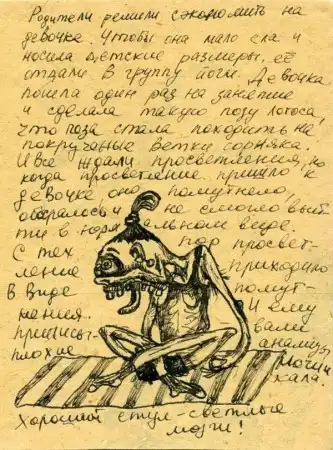 Родители решили сэкономить на
девочке. Чтобы она мало ела и
носила детские размеры, её
отдали в группу йоги. Девочка
пошла один раз на занятие
и сделала такую позу лотоса,
что поза стала походить на
покручаные ветки сорняка.
И все ждали просветления, но
когда просветление пришло к
девочке оно помутнело,
и не смогло вый
ти в нормальном виде.
С тех пор просвет-
ление приходило
в виде помут-
нения. И ему
приписы- вали
плохие анализы
мочи и
кала
Хороший стул - светлые
мозги!